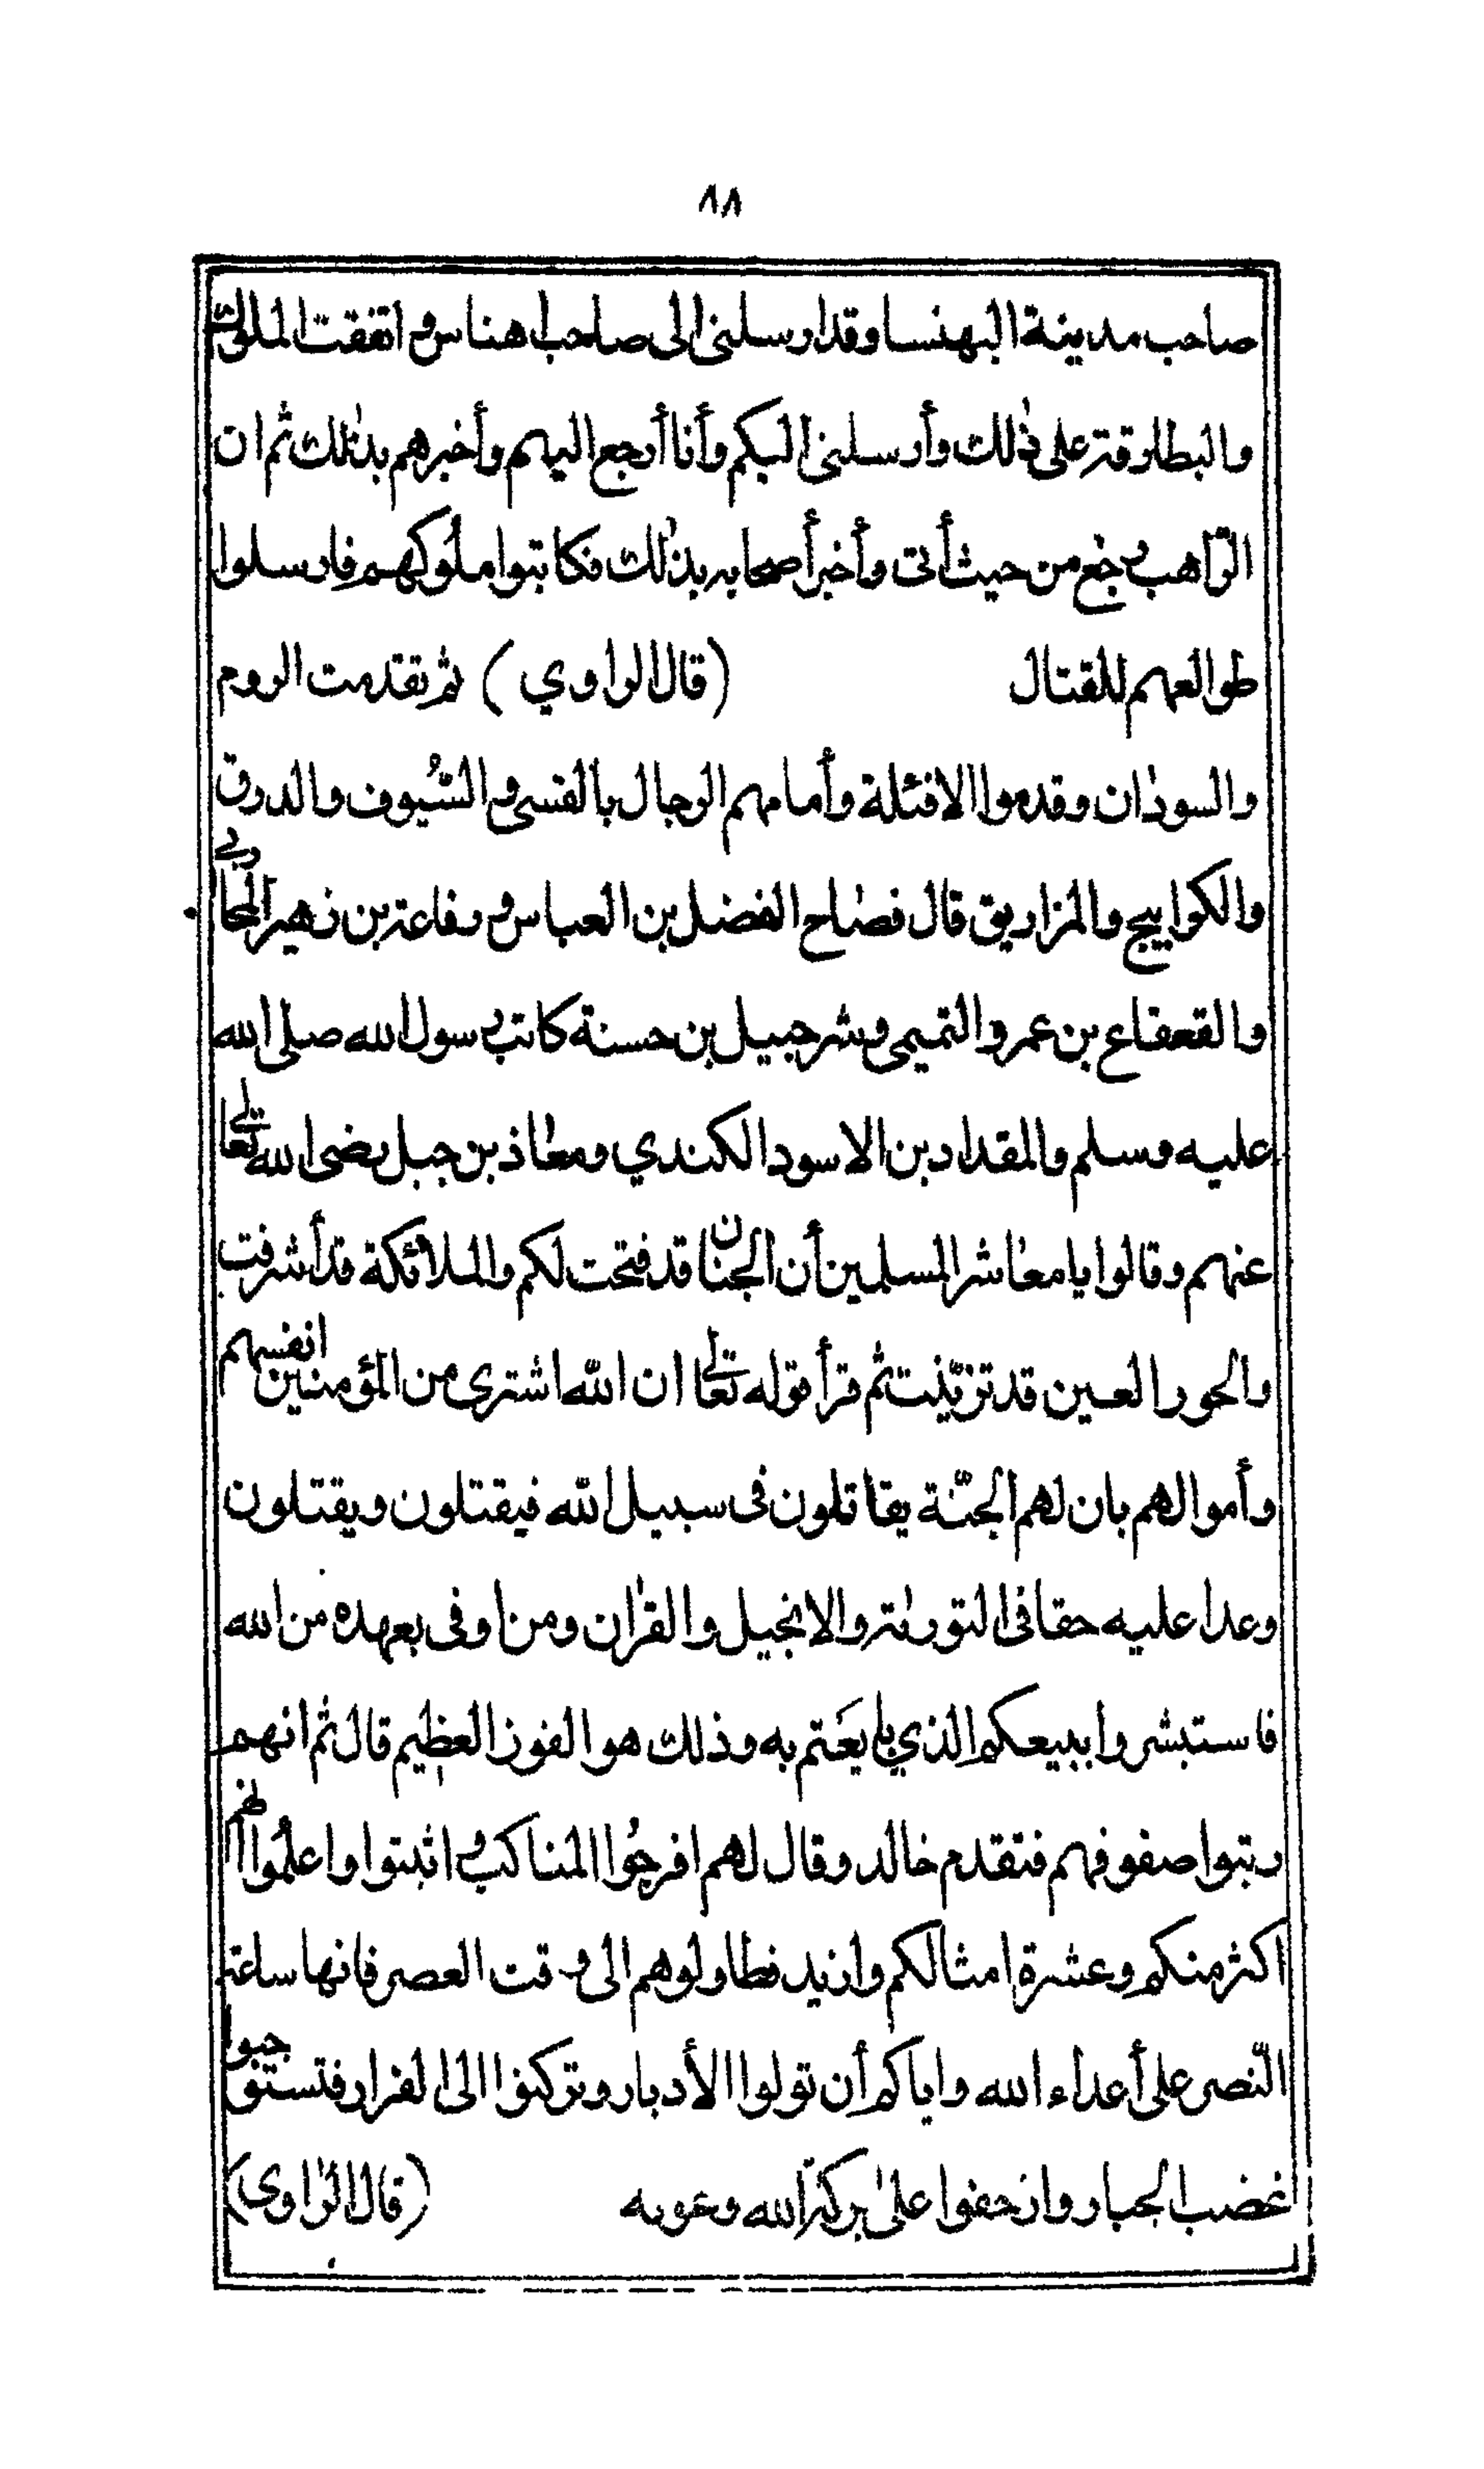 ٨٨
صاحب مدينة البهنسا وقد ارسلنى الى صاحب اهناس واتفقت الملوك
والبطارقة على ذلك وأرسلنى اليكم وأنا أرجع اليهم وأخبرهم بذلك ثم ان
الرّاهب رجع من حيث أتى وأخبر أصحابه بذلك فكاتبوا ملوكهم فارسلوا
طوالعهم للقتال (قال الراوي) ثم تقدمت الروم
والسودان وقدموا الافئلة وأمامهم الرجال بالقسى والسُّيوف والدرق
والكوابيج والمزاريق قال فصاح الفضل بن العباس ورفاعة بن زهير المحاربي
والقعقاع بن عمرو التميمى وشرحبيل بن حسنة كاتب رسول الله صلى الله
عليه وسلم والمقداد بن الاسود الكندي ومعاذ بن جبل رضى الله تعالى
عنهم وقالوا يا معاشر المسلمين أن الجنان قد فتحت لكم والملائكة قد أشرفت
والحور العين قد تزيّنت ثم قرأ قوله تعالى ان اللّه اشترى من المؤمنين انفسهم
وأموالهم بان لهم الجنّة يقاتلون فى سبيل اللّه فيقتلون ويقتلون
وعدا عليه حقا فى التورٰىة والانجيل والقرٰان ومن اوفى بعهده من الله
فاستبشروا ببيعكم الذي بايعَتم به وذلك هو الفوز العظيم قال ثم انهم
رتبوا صفوفهم فتقدم خالد وقال لهم افرجُوا المناكب واثبتوا واعلمُوا انهم
اكثر منكم وعشرة امثالكم وازيد فطاولوهم الى وقت العصر فانها ساعة
النّصر على أعداء الله واياكم أن تولوا الأدبار وتركنوا الى الفرار فتستوجبوا
غضب الجبار وازحفوا علىٰ بركة الله وعونه (قال الرّاوى)